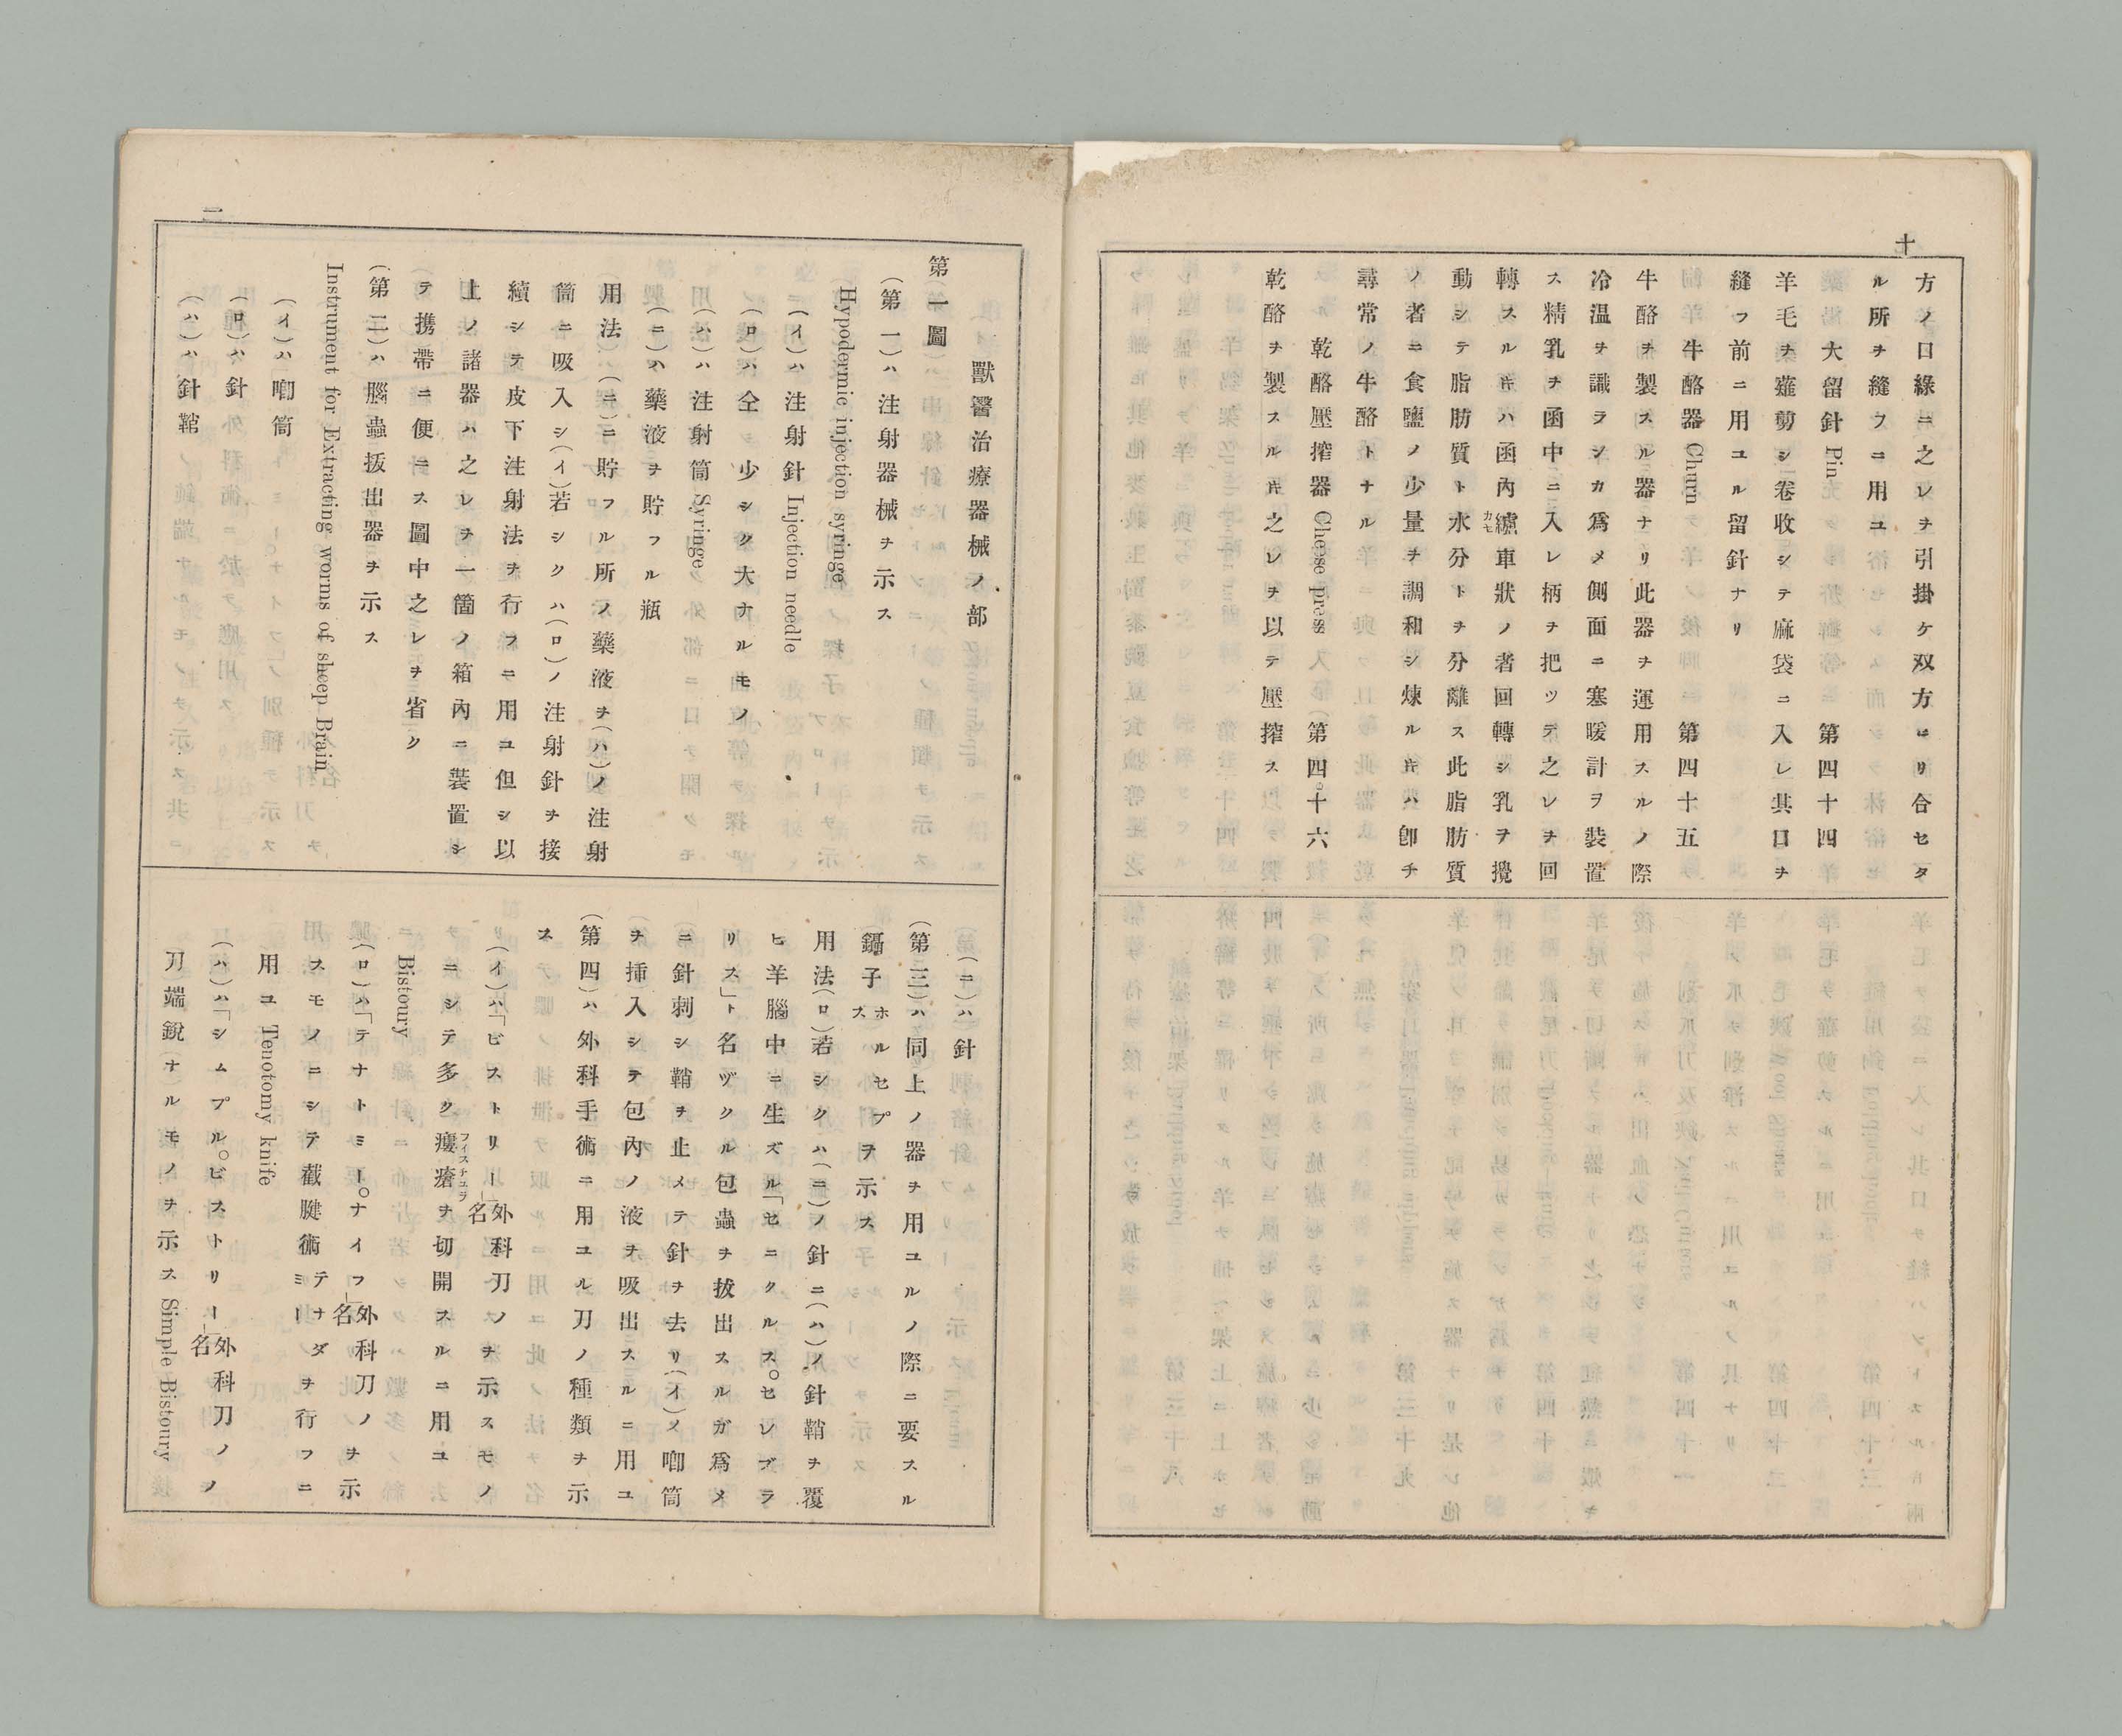 十
方ノ口緣ニ之レヲ引掛ケ双方ヨリ合セタ
ル所ヲ縫フニ用ユ
大留針 Pin 第四十四
羊毛ヲ薙剪シ卷收シテ麻袋ニ入レ其口ヲ
縫フ前ニ用ユル留針ナリ
牛酪器 Churn 第四十五
牛酪ヲ製スル器ナリ此器ヲ運用スルノ際
冷温ヲ識ラシカ爲メ側面ニ寒暖計ヲ裝置
ス精乳ヲ函中ニ入レ柄ヲ把ツテ之レヲ回
轉スル片ハ函內纑車狀ノ者回轉シ乳ヲ攪
動シテ脂肪質ト水分トヲ分離ス此脂肪質
ノ者ニ食鹽ノ少量ヲ調和シ煉ル片ハ卽チ
尋常ノ牛酪トナル
乾酪壓搾器 Cheese press 第四十六
乾酪ヲ製スル片之レヲ以テ壓搾ス
二
獸醫治療器械ノ部
第一圖
(第一)ハ注射器械ヲ示ス
Hypodermic injection syringe
(イ)ハ注射針 Injection needle
(ロ)ハ仝 少シク大ナルモノ
(ハ)ハ注射筒 Syringe
(ニ)ハ藥液ヲ貯フル瓶
用法 (ニ)ニ貯フル所ノ藥液ヲ(ハ)ノ注射
筒ニ吸入シ(イ)若シクハ(ロ)ノ注射針ヲ接
續シテ皮下注射法ヲ行フニ用ユ但シ以
上ノ諸器ハ之レヲ一箇ノ箱內ニ裝置シ
テ携帶ニ便ニス圖中之レヲ省ク
(第二)ハ腦蟲拔出器ヲ示ス
Instrument for Extracting worms of sheep Brain
(イ)ハ喞筒
(ロ)ハ針
(ハ)ハ針鞘
(ニ)ハ針
(第三)ハ同上ノ器ヲ用ユルノ際ニ要スル
鑷子ホルセプスヲ示ス
用法(ロ)若シクハ(ニ)ノ針ニ(ハ)ノ針鞘ヲ覆
ヒ羊腦中ニ生ズル「セニクルス○セレブラ
リス」ト名ヅクル包蟲ヲ拔出スルガ爲メ
ニ針刺シ鞘ヲ止メテ針ヲ去リ(イ)ノ喞筒
ヲ揷入シテ包內ノ液ヲ吸出スルニ用ユ
(第四)ハ外科手術ニ用ユル刀ノ種類ヲ示
ス
(イ)ハ「ビストリー」外科刀ノ名ヲ示スモノ
ニシテ多ク瘻瘡フイスチユラヲ切開スルニ用ユ
Bistoury
(ロ)ハ「テナトミー○ナイフ」外科刀ノ名ヲ示
スモノニシテ截腱術テナダミーヲ行フニ
用ユ Tenotomy knife
(ハ)ハ「シムプル○ビストリー」外科刀ノ名ノ
刀端銳ナルモノヲ示ス Simple Bistoury